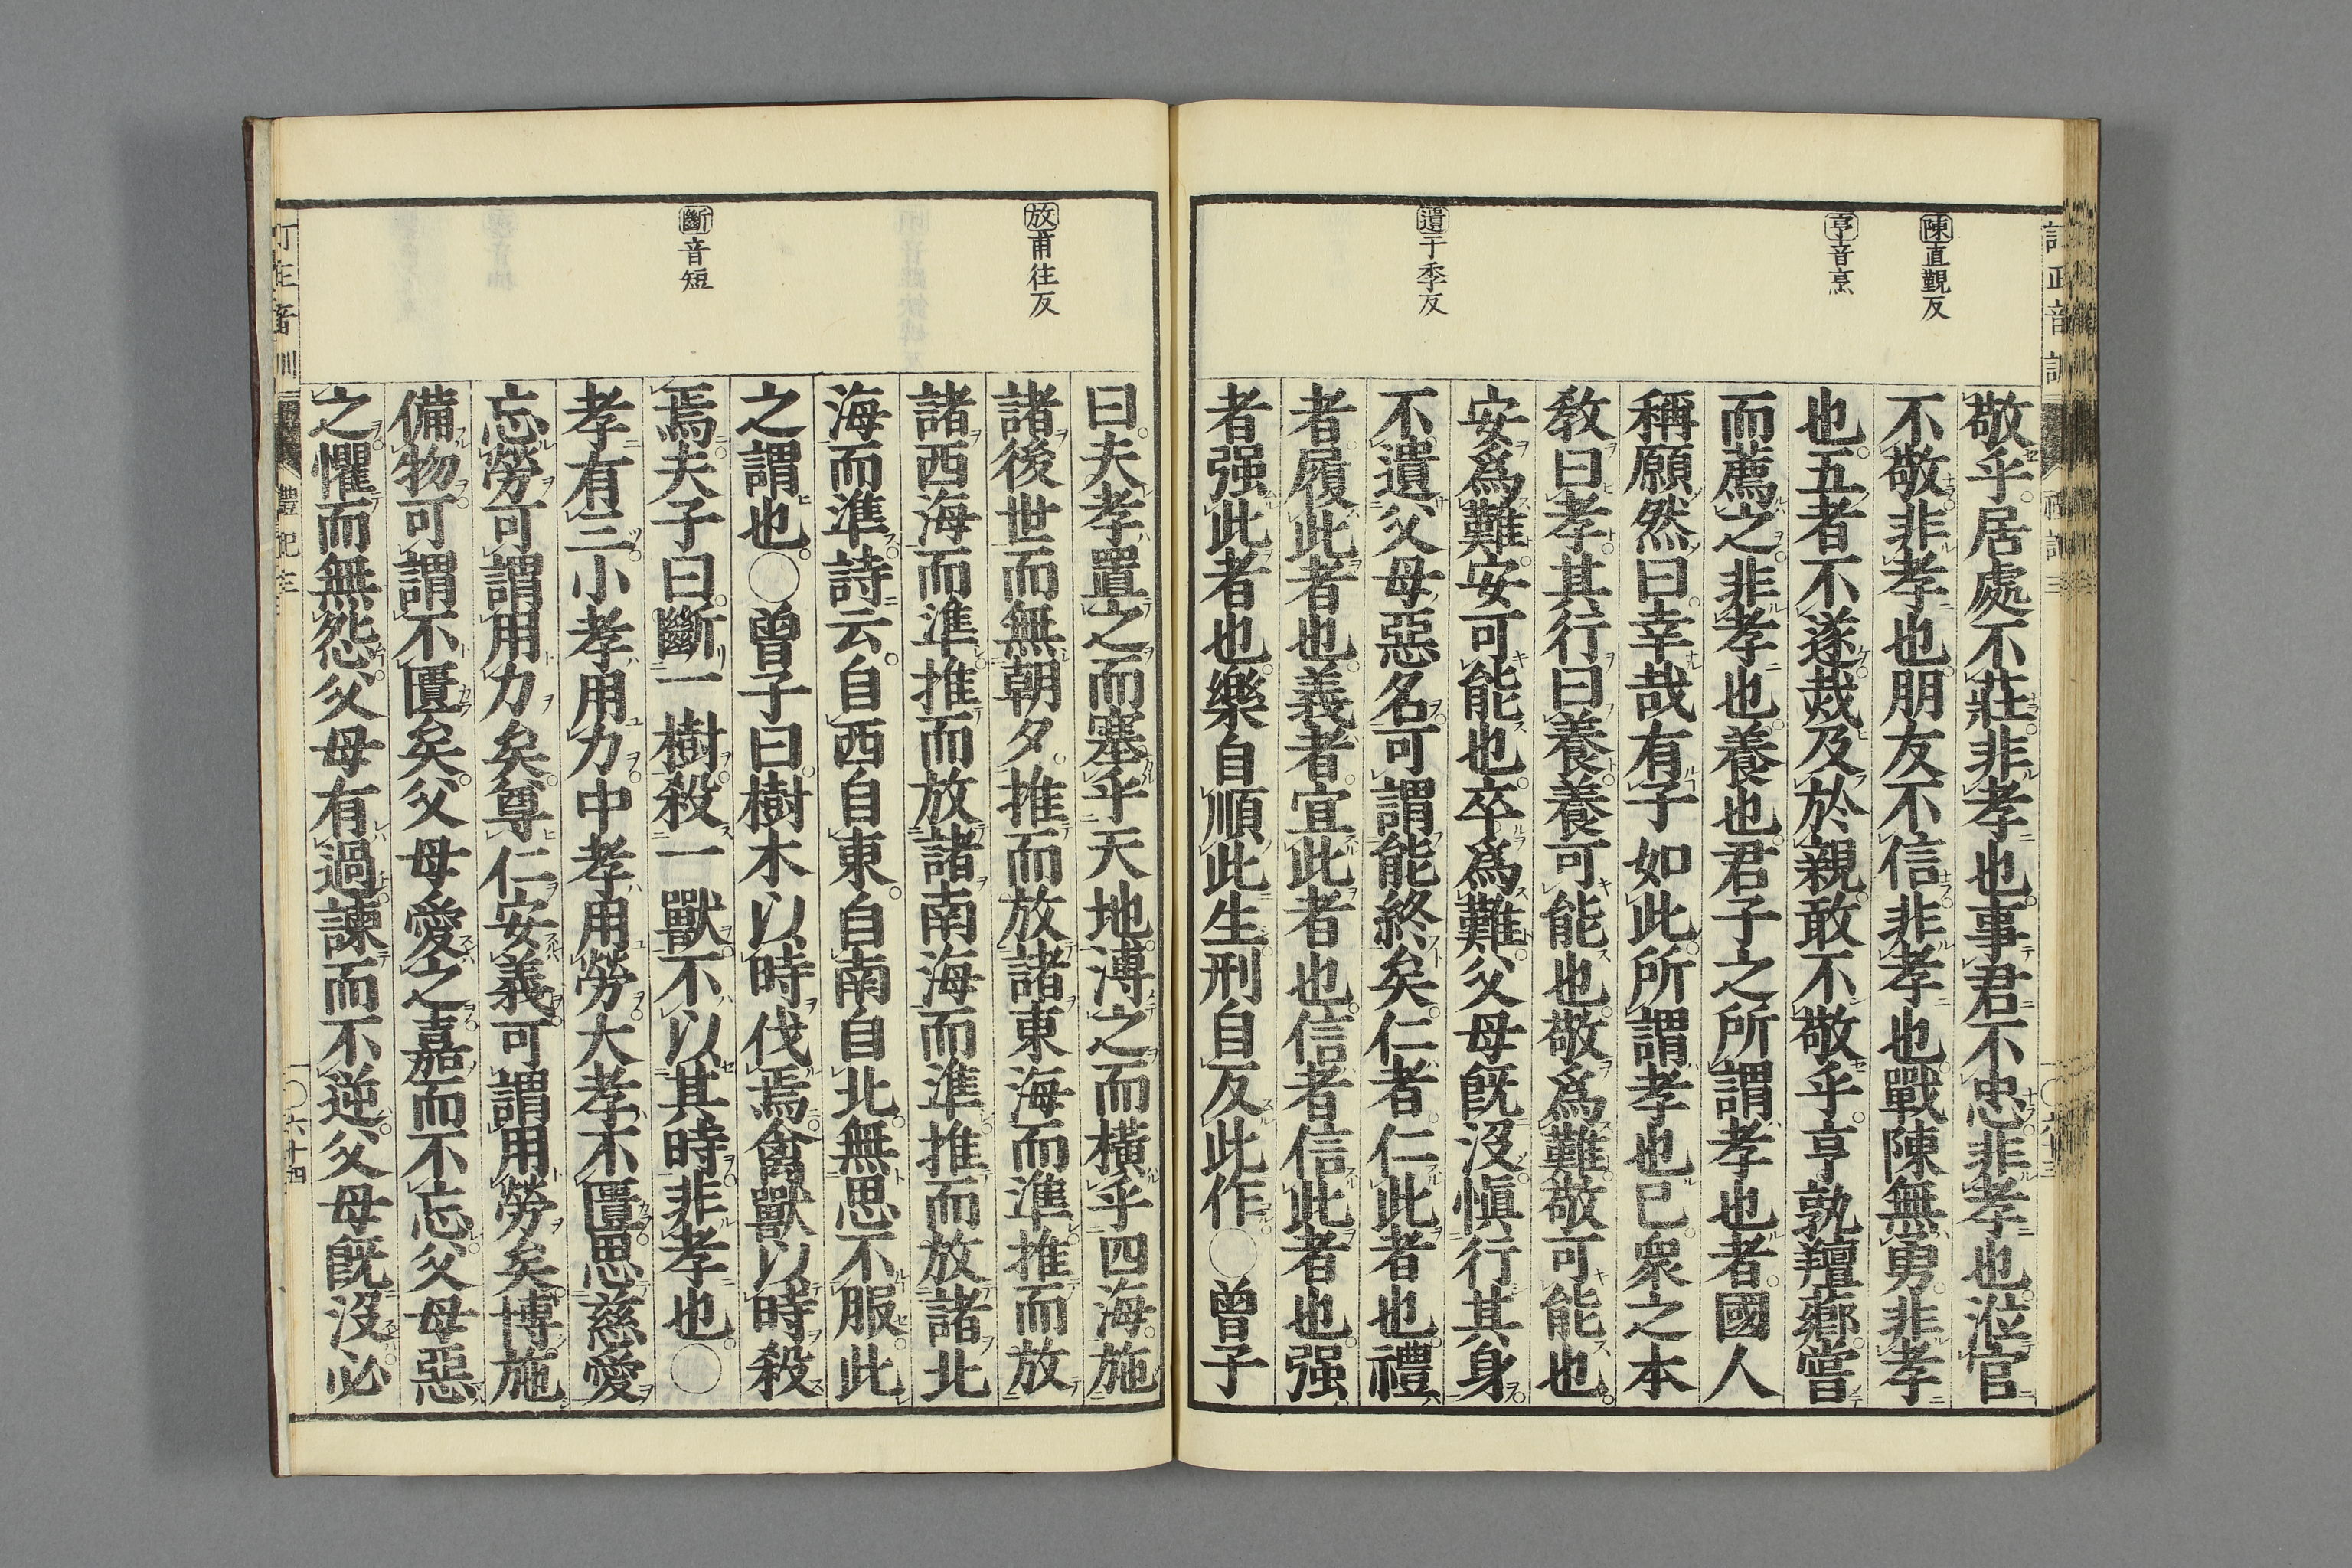 陳直觀反
亨音烹
遺于季反
敬乎居處不莊非孝也事君不忠非孝也涖官
不敬非孝也朋友不信非孝也戰陳無勇非孝
也五者不遂烖及於親敢不敬乎亨孰羶薌嘗
而薦之非孝也養也君子之所謂孝也者國人
稱願然曰幸哉有子如此所謂孝也已衆之本
敎曰孝其行曰養養可能也敬爲難敬可能也
安爲難安可能也卒爲難父母旣沒愼行其身
不遺父母惡名可謂能終矣仁者仁此者也禮
者履此者也義者宜此者也信者信此者也强
者强此者也樂自順此生刑自反此作○曾子
放甫往反
斷音短
曰夫孝置之而塞乎天地溥之而橫乎四海施
諸後世而無朝夕推而放諸東海而準推而放
諸西海而準推而放諸南海而準推而放諸北
海而準詩云自西自東自南自北無思不服此
之謂也○曾子曰樹木以時伐焉禽獸以時殺
焉夫子曰斷一樹殺一獸不以其時非孝也○
孝有三小孝用力中孝用勞大孝不匱思慈愛
忘勞可謂用力矣尊仁安義可謂用勞矣博施
備物可謂不匱矣父母愛之嘉而不忘父母惡
之懼而無怨父母有過諫而不逆父母旣沒必
訂正音訓 禮記三 六十四